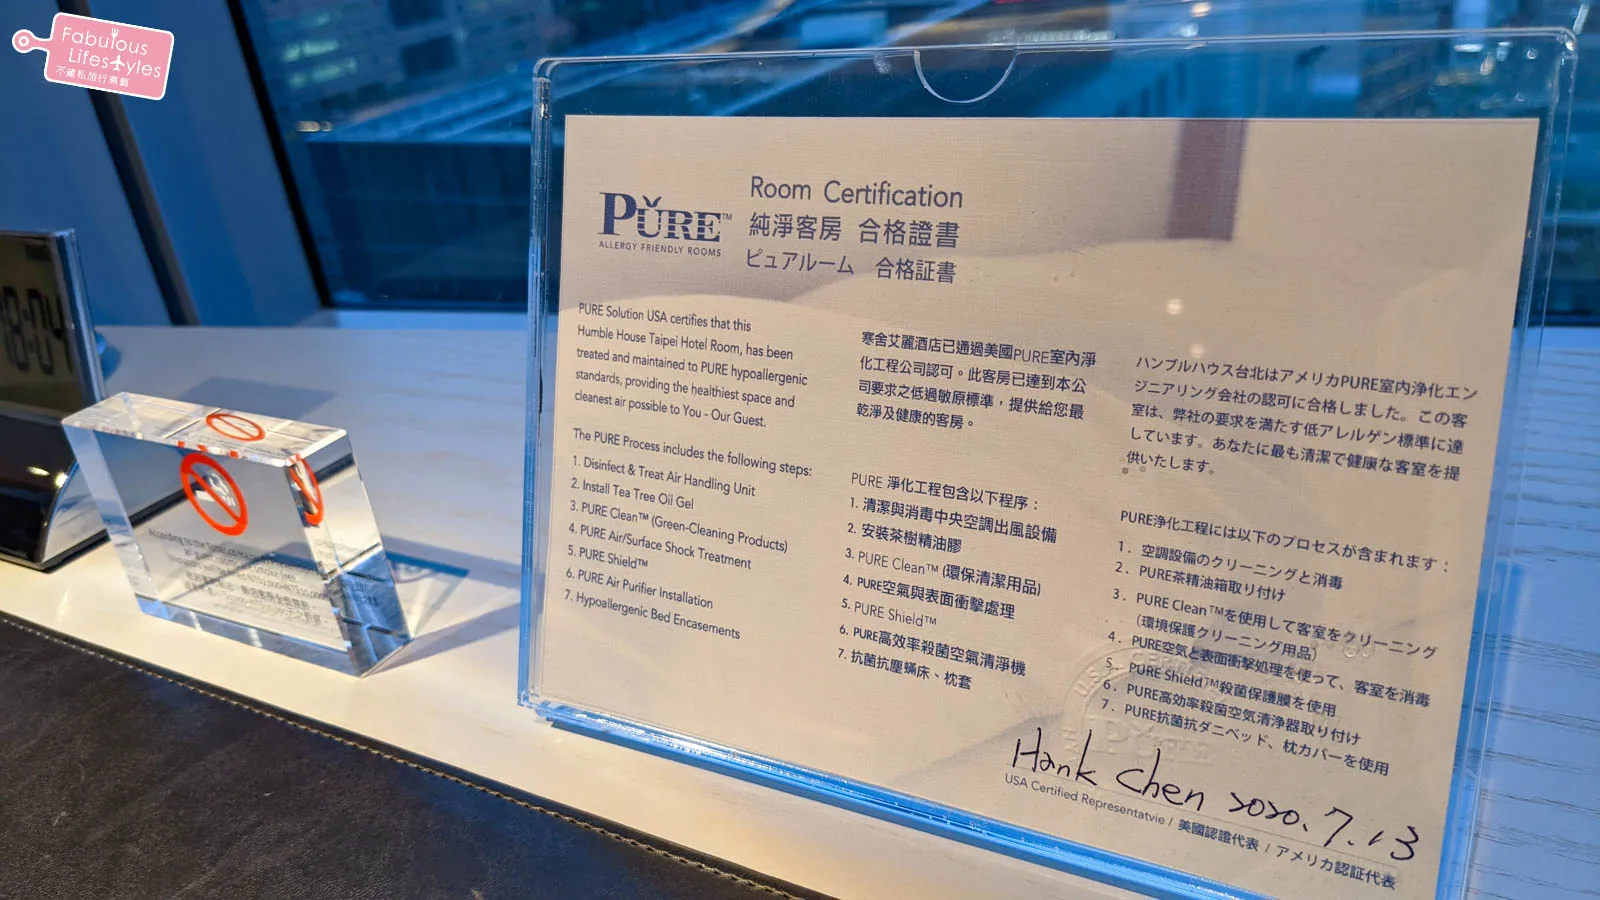 Fabulous
Lifestyles
不藏私旅行煮藝
18:04
PURE™
ALLERGY FRIENDLY ROOMS
Room Certification
純淨客房 合格證書
ピュアルーム 合格証書
PURE Solution USA certifies that this
Humble House Taipei Hotel Room, has been
treated and maintained to PURE hypoallergenic
standards, providing the healthiest space and
cleanest air possible to You - Our Guest.
The PURE Process includes the following steps:
1. Disinfect & Treat Air Handling Unit
2. Install Tea Tree Oil Gel
3. PURE Clean™ (Green-Cleaning Products)
4. PURE Air/Surface Shock Treatment
5. PURE Shield™
6. PURE Air Purifier Installation
7. Hypoallergenic Bed Encasements
寒舍艾麗酒店已通過美國PURE室內淨
化工程公司認可。此客房已達到本公
司要求之低過敏原標準，提供給您最
乾淨及健康的客房。
PURE 淨化工程包含以下程序：
1. 清潔與消毒中央空調出風設備
2. 安裝茶樹精油膠
3. PURE Clean™ (環保清潔用品)
4. PURE空氣與表面衝擊處理
5. PURE Shield™
6. PURE高效率殺菌空氣清淨機
7. 抗菌抗塵蟎床、枕套
ハンブルハウス台北はアメリカPURE室内浄化エン
ジニアリング会社の認可に合格しました。この客
室は、弊社の要求を満たす低アレルゲン標準に達
しています。あなたに最も清潔で健康な客室を提
供いたします。
PURE浄化工程には以下のプロセスが含まれます：
1. 空調設備のクリーニングと消毒
2. PURE茶精油箱取り付け
3. PURE Clean™を使用して客室をクリーニング
（環境保護クリーニング用品）
4. PURE空気と表面衝撃処理を使って、客室を消毒
5. PURE Shield™殺菌保護膜を使用
6. PURE高効率殺菌空気清浄器取り付け
7. PURE抗菌抗ダニベッド、枕カバーを使用
Hank Chen 2020.7.13
USA Certified Representatvie / 美國認證代表 / アメリカ認証代表